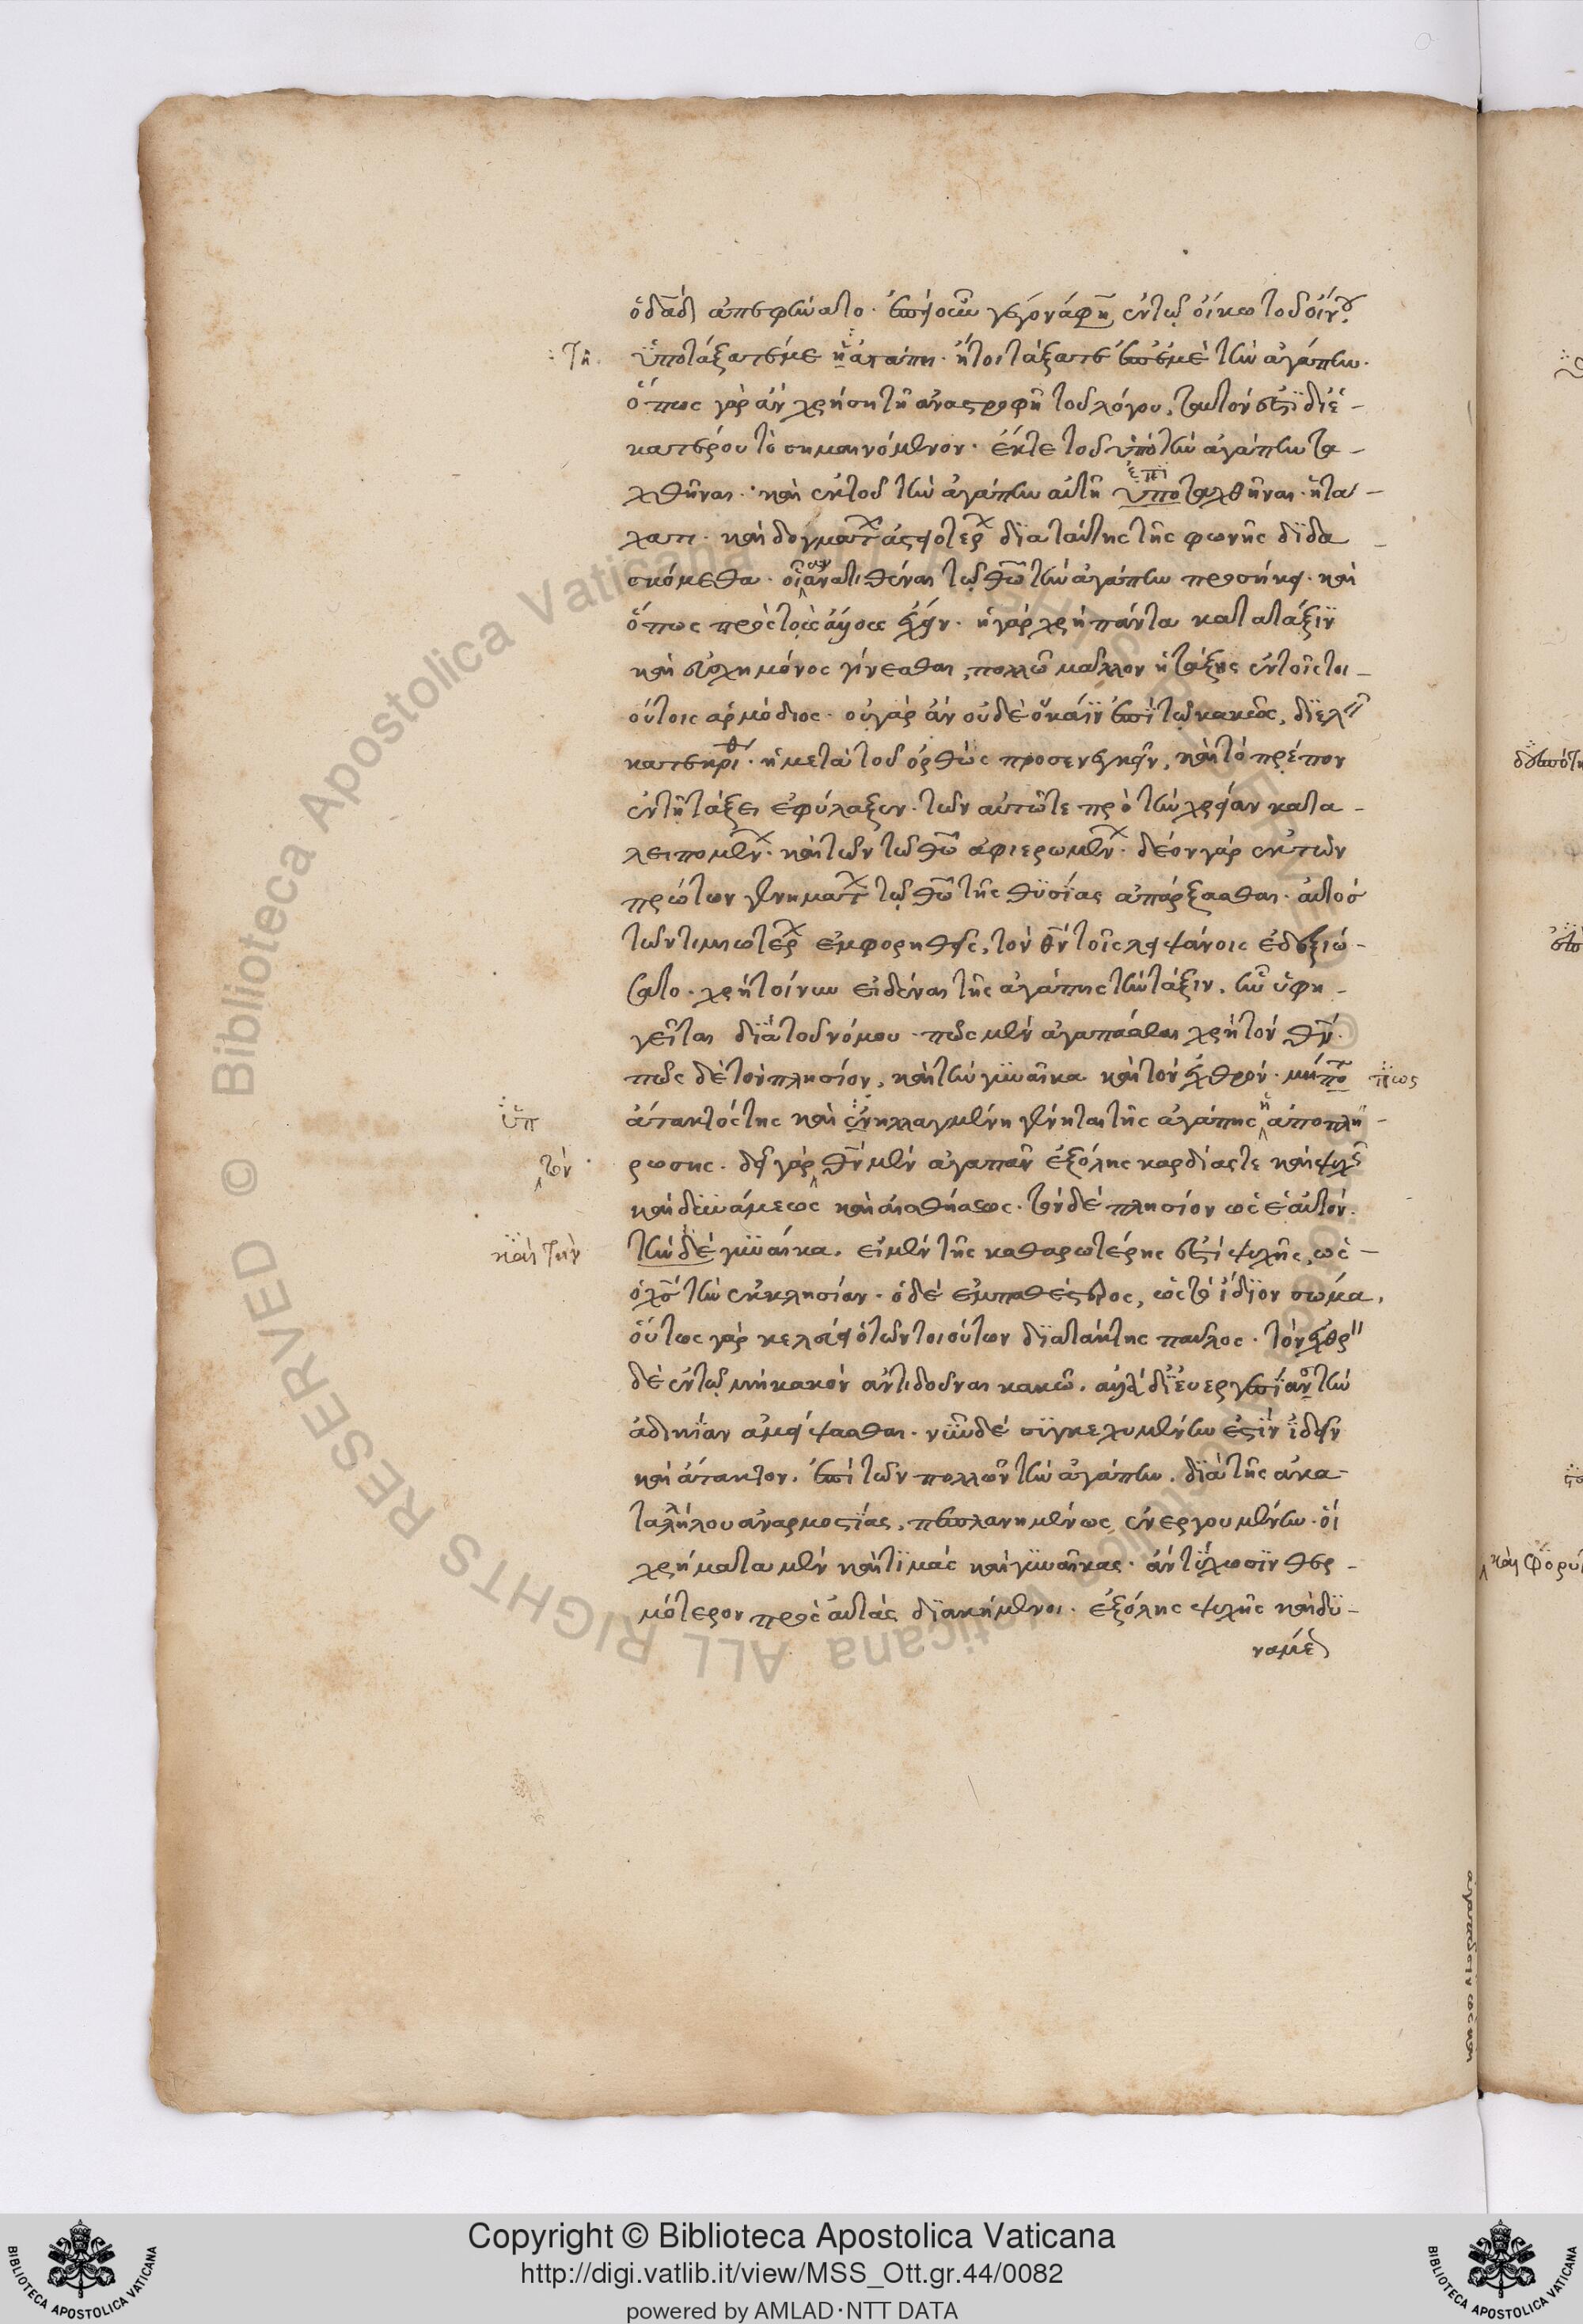 ὁ δᾱδ ἀπεφήνατο· ἐπειδὴ οὖν γέγονά φησιν ἐν τῷ οἴκῳ τοῦ οἴνου·
: τῆ. ὑποτάξατέ με ἡ ἀγάπη· ἤτοι τάξατε ἐπ' ἐμὲ τὴν ἀγάπην·
ὅπως γὰρ ἂν χρήσῃ τῇ ἀναστροφῇ τοῦ λόγου, ταυτόν ἐστι δι' ἑ-
κατέρου τὸ σημαινόμενον· ἔκ τε τοῦ ὑπὸ τὴν ἀγάπην τα-
χθῆναι· καὶ ἐκ τοῦ τὴν ἀγάπην αὐτῇ ὑποταχθῆναι· ἢ τά-
ἐπι
χατι· καὶ δογμάτων ἀστειοτέρων διὰ ταύτης τῆς φωνῆς διδα-
σκόμεθα· οἵαν ἀνατιθέναι τῷ θω τὴν ἀγάπην προσήκει· καὶ
ὅπως πρὸς τοὺς ἄλλους ἔχειν· εἰ γὰρ χρὴ πάντα κατὰ τάξιν
καὶ εὐσχημόνως γίνεσθαι, πολλῷ μᾶλλον ἡ τάξις ἐν τοῖς τοι-
ούτοις ἁρμόδιος· οὐ γὰρ ἂν οὐδὲ ὁ κάιν ἐπὶ τῷ κακῶς διελεῖν
κατεκρίθη· εἰ μετὰ τοῦ ὀρθῶς προσενεγκεῖν, καὶ τὸ πρέπον
ἐν τῇ τάξει ἐφύλαξεν· τῶν αὐτῷ τε πρὸς τὴν χρείαν κατα-
λειπομένων· καὶ τῶν τῷ θω ἀφιερωμένων· δέον γὰρ ἐκ τῶν
πρώτων γεννημάτων τῷ θω τῆς θυσίας ἀπάρξασθαι· αὐτὸς
τῶν τιμιωτέρων ἐμφορηθεὶς, τὸν θν τοῖς λειψάνοις ἐδεξιώ-
σατο· χρὴ τοίνυν εἰδέναι τῆς ἀγάπης τὴν τάξιν, ἣν ὑφη-
γεῖται διὰ τοῦ νόμου· πῶς μὲν ἀγαπᾶσθαι χρὴ τὸν θν·
πῶς δὲ τὸν πλησίον, καὶ τὴν γυναῖκα καὶ τὸν ἐχθρόν· μή πο πως
ὑπ ἄτακτός τις καὶ ἐνηλλαγμένη γένηται τῆς ἀγάπης ἡ ἀποπλή-
τὸν ρωσις· δεῖ γὰρ θν μὲν ἀγαπᾶν ἐξ ὅλης καρδίας τε καὶ ψυχῆς
καὶ δυνάμεως καὶ αἰσθήσεως· τὸν δὲ πλησίον ὡς ἑαυτόν·
καὶ τὴν τὴν δὲ γυναίκα, εἰ μὲν τῆς καθαρωτέρης ἐστὶ ψυχῆς, ὡς
ὁ χσ τὴν ἐκκλησίαν· ὁ δὲ ἐμπαθέστερος, ὡς τὸ ἴδιον σῶμα,
οὕτως γὰρ κελεύει ὁ τῶν τοιούτων διατάκτης παῦλος· τὸν ἐχθρὸν
δὲ ἐν τῷ μὴ κακὸν ἀντιδοῦναι κακοῦ, ἀλλὰ δι' εὐεργεσίαν τὴν
ἀδικίαν ἀμείψασθαι· νῦν δὲ συγκεχυμένην ἐστὶν ἰδεῖν
καὶ ἄτακτον, ἐπὶ τῶν πολλῶν τὴν ἀγάπην, διὰ τῆς ἀκα-
ταλλήλου ἀναρμοστίας, πεπλανημένως ἐνεργουμένην· οἱ
χρήματα μὲν καὶ τιμὰς καὶ γυναῖκας· ἂν τύχωσιν θερ-
μότερον πρὸς αὐτὰς διακείμενοι· ἐξ ὅλης ψυχῆς καὶ δυ-
νάμεως
Copyright © Biblioteca Apostolica Vaticana
http://digi.vatlib.it/view/MSS_Ott.gr.44/0082
powered by AMLAD·NTT DATA
BIBLIOTECA APOSTOLICA VATICANA
BIBLIOTECA APOSTOLICA VATICANA
Biblioteca Apostolica Vaticana ALL RIGHTS RESERVED ©